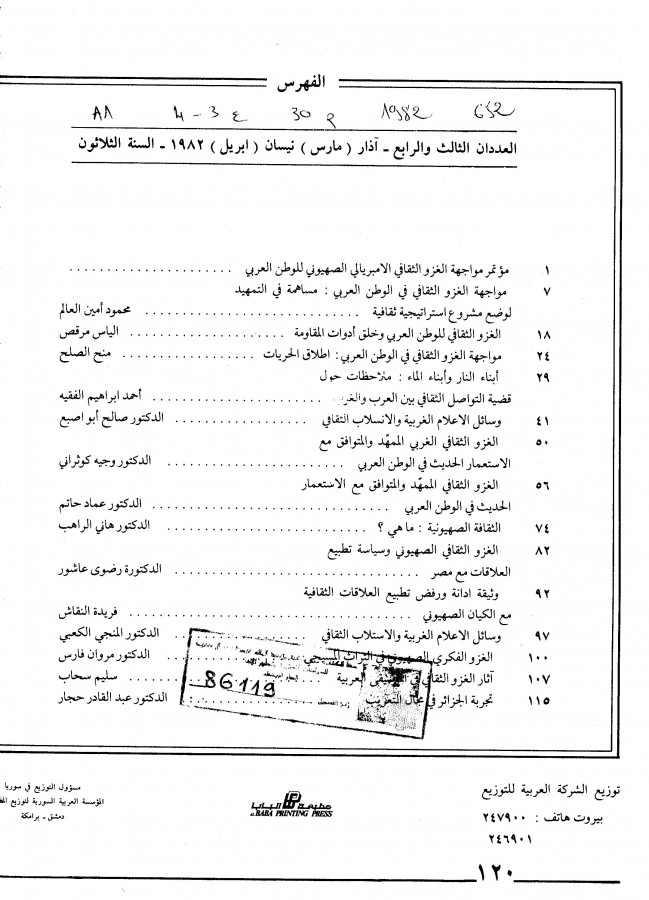 الفهرس
٨٨ ٤-3 ع 30 م 1982 652
العددان الثالث والرابع - آذار ( مارس ) نيسان ( ابريل ) ١٩٨٢ - السنة الثلاثون
١ مؤتمر مواجهة الغزو الثقافي الامبريالي الصهيوني للوطن العربي
٧ مواجهة الغزو الثقافي في الوطن العربي : مساهمة في التمهيد
لوضع مشروع استراتيجية ثقافية محمود أمين العالم
١٨ الغزو الثقافي للوطن العربي وخلق أدوات المقاومة الياس مرقص
٢٤ مواجهة الغزو الثقافي في الوطن العربي: اطلاق الحريات منح الصلح
٢٩ أبناء النار وأبناء الماء : ملاحظات حول
قضية التواصل الثقافي بين العرب والغرب أحمد ابراهيم الفقيه
٤١ وسائل الاعلام الغربية والانسلاب الثقافي الدكتور صالح أبو اصبع
٥٠ الغزو الثقافي الغربي الممهّد والمتوافق مع
الاستعمار الحديث في الوطن العربي الدكتور وجيه كوثراني
٥٦ الغزو الثقافي الممهّد والمتوافق مع الاستعمار
الحديث في الوطن العربي الدكتور عماد حاتم
٧٤ الثقافة الصهيونية : ما هي ؟ الدكتور هاني الراهب
٨٢ الغزو الثقافي الصهيوني وسياسة تطبيع
العلاقات مع مصر الدكتورة رضوى عاشور
٩٢ وثيقة ادانة ورفض تطبيع العلاقات الثقافية
مع الكيان الصهيوني فريدة النقاش
٩٧ وسائل الاعلام الغربية والاستلاب الثقافي الدكتور المنجي الكعبي
١٠٠ الغزو الفكري الصهيوني في التراث المسيحي الدكتور مروان فارس
١٠٧ آثار الغزو الثقافي في الموسيقى العربية سليم سحاب
١١٥ تجربة الجزائر في مجال التعريب الدكتور عبد القادر حجار
86119
توزيع الشركة العربية للتوزيع
بيروت هاتف : ٢٤٧٩٠٠
٢٤٦٩٠١
مطبعة البابا
al BABA PRINTING PRESS
مسؤول التوزيع في سوريا
المؤسسة العربية السورية لتوزيع
دمشق - برامكة
١٢٠